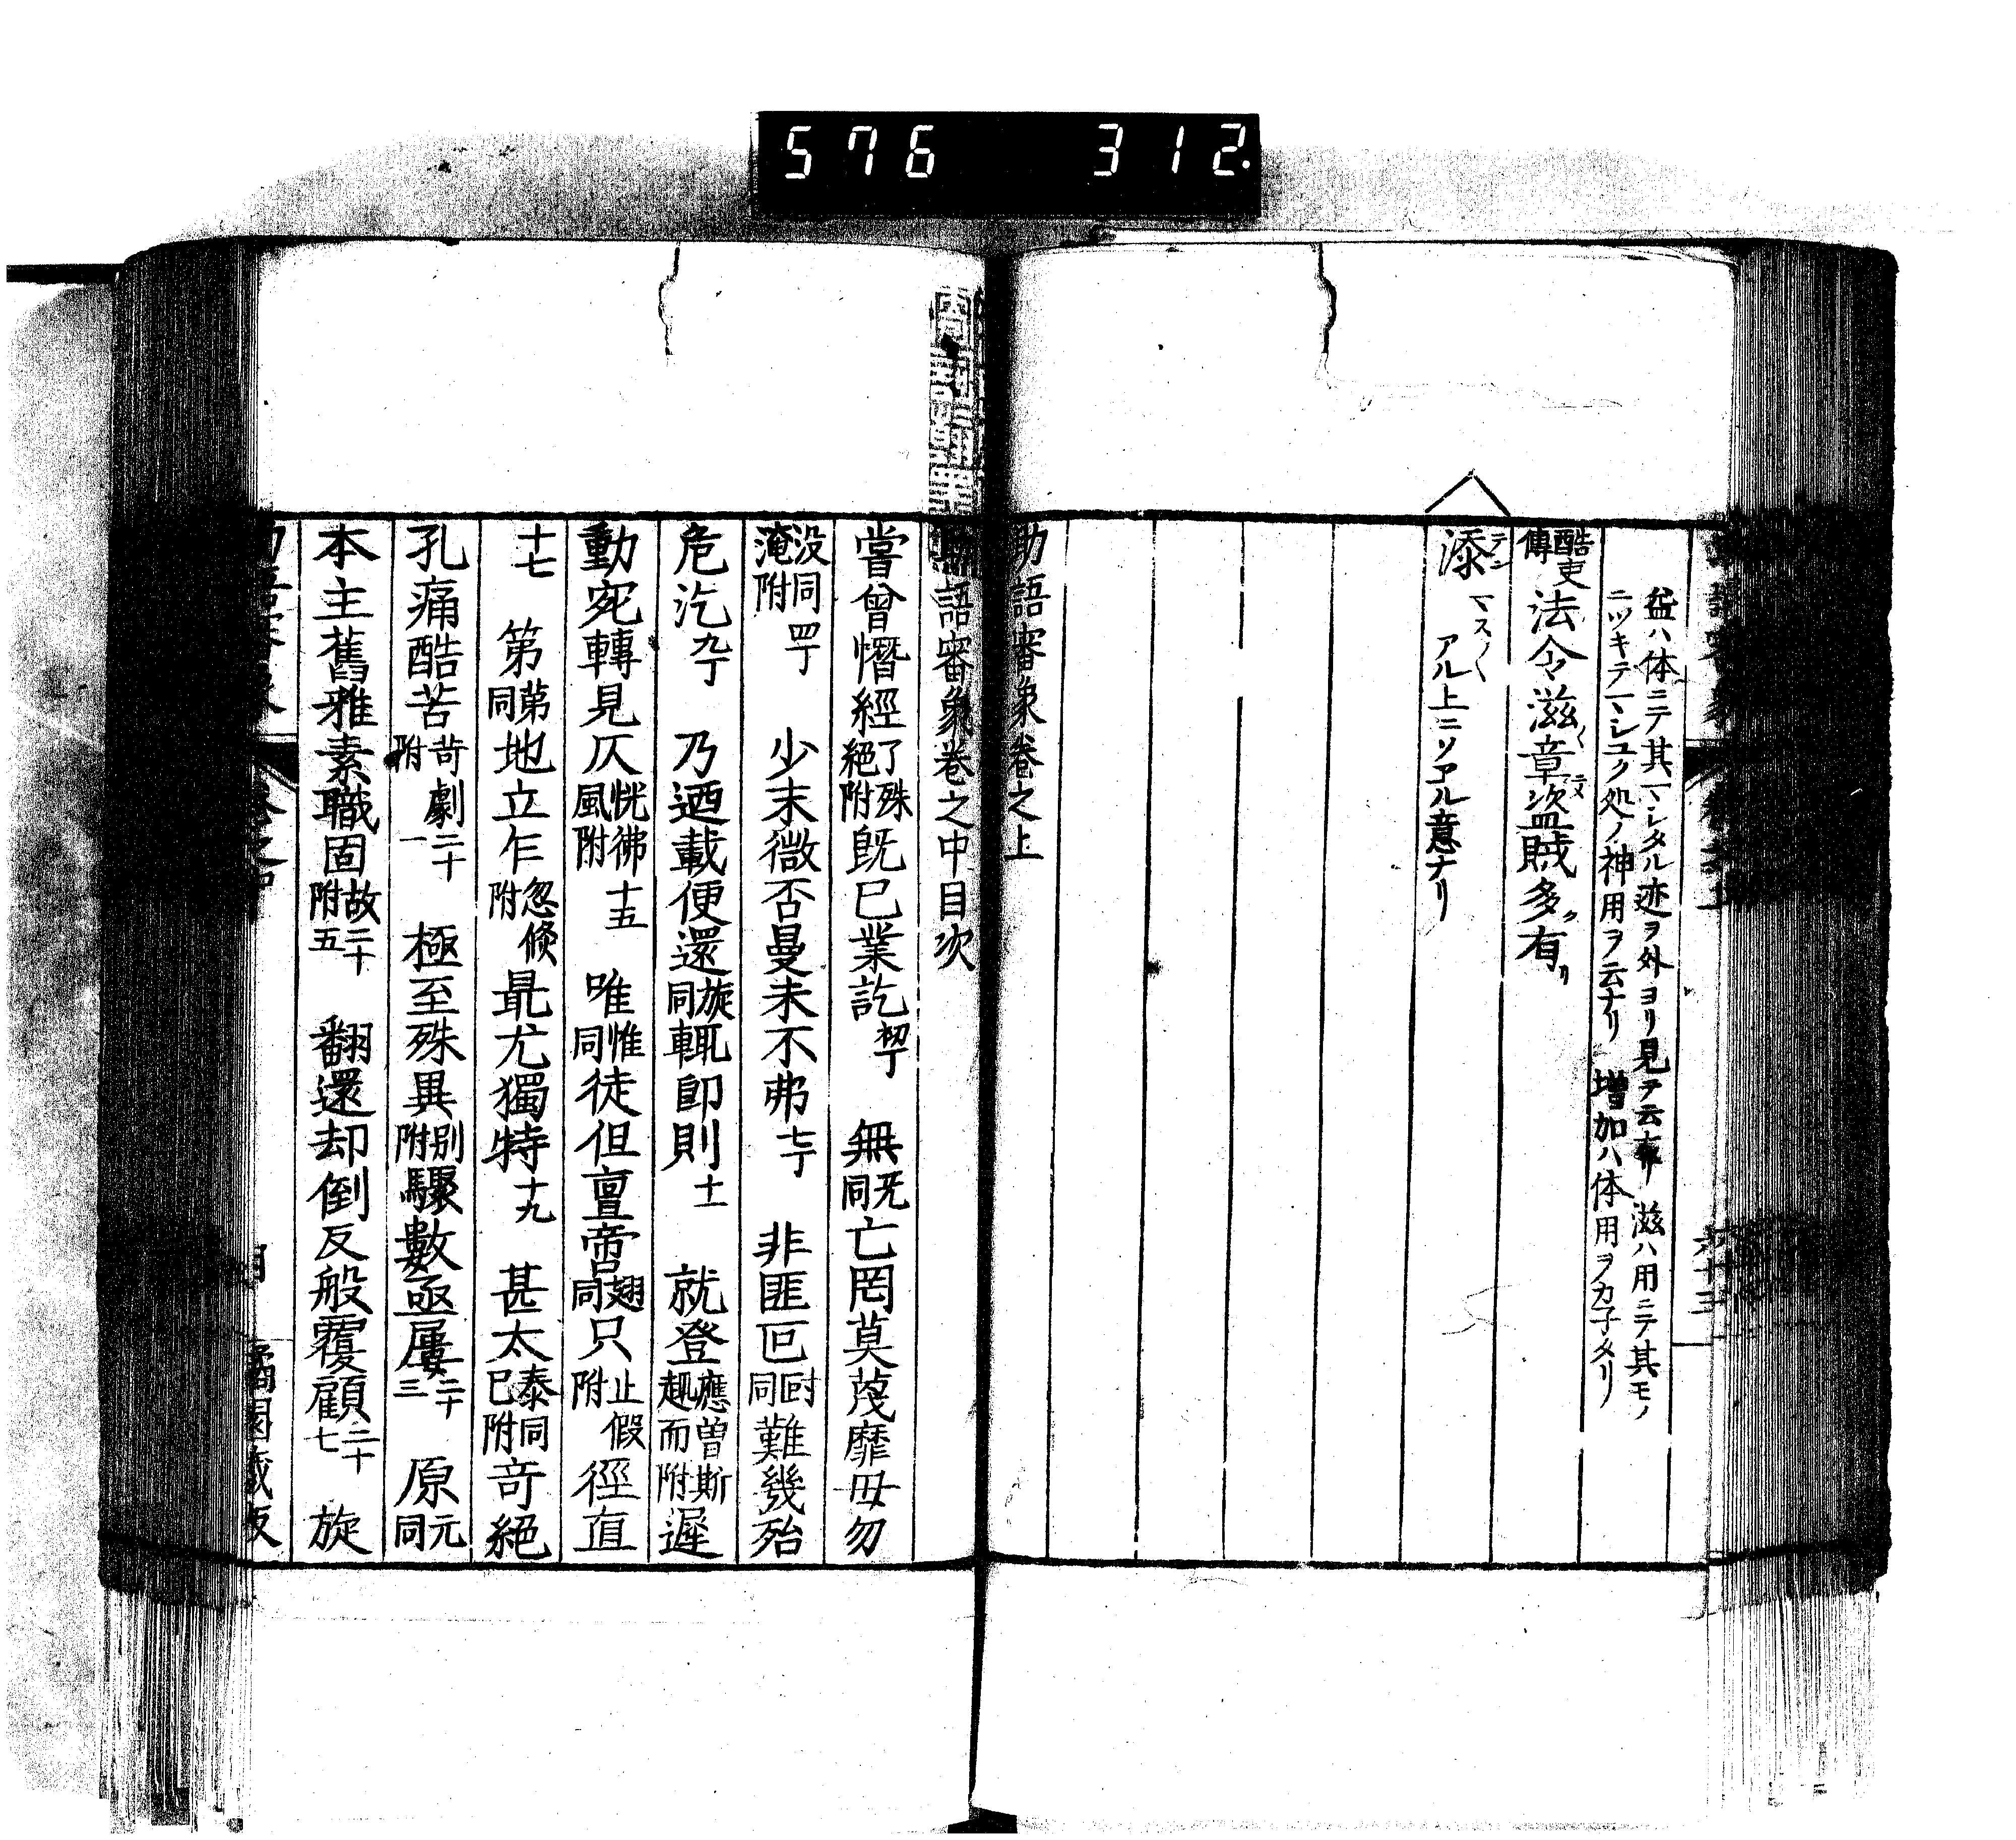 576 312.
益ハ体ニテ其マシタル迹ヲ外ヨリ見テ云 滋ハ用ニテ其モノ
ニツキテマシユク処ノ神用ヲ云ナリ 増加ハ体用ヲカ子タリ
酷吏傳 法令滋章盗賊多有リ
添 テン マス〱 アル上ニソアル意ナリ
助語審象巻之上
助語審象巻之中目次
嘗曾憯經 了殊絕附 既已業訖 初丁 無 无同 亡罔莫蔑靡毋勿
没同淹附 四丁 少末微否曼未不弗 七丁 非匪叵 同 難幾殆
危汔 九丁 乃迺載便還 旋同 輒即則 十一 就登 應曽斯趣而附 遲
動宛轉見仄 恍彿風附 十五 唯 惟同 徒但亶啻 翅同 只 止假附 徑直
十七 第 苐同 地立乍 忽倏附 最尤獨特 十九 甚太 泰同已附 奇絕
孔痛酷苦 苛劇附 二十一 極至殊異 別附 驟數亟屢 二十三 原 元同
本主舊雅素職固 故附 二十五 翻還却倒反般覆顧 二十七 旋